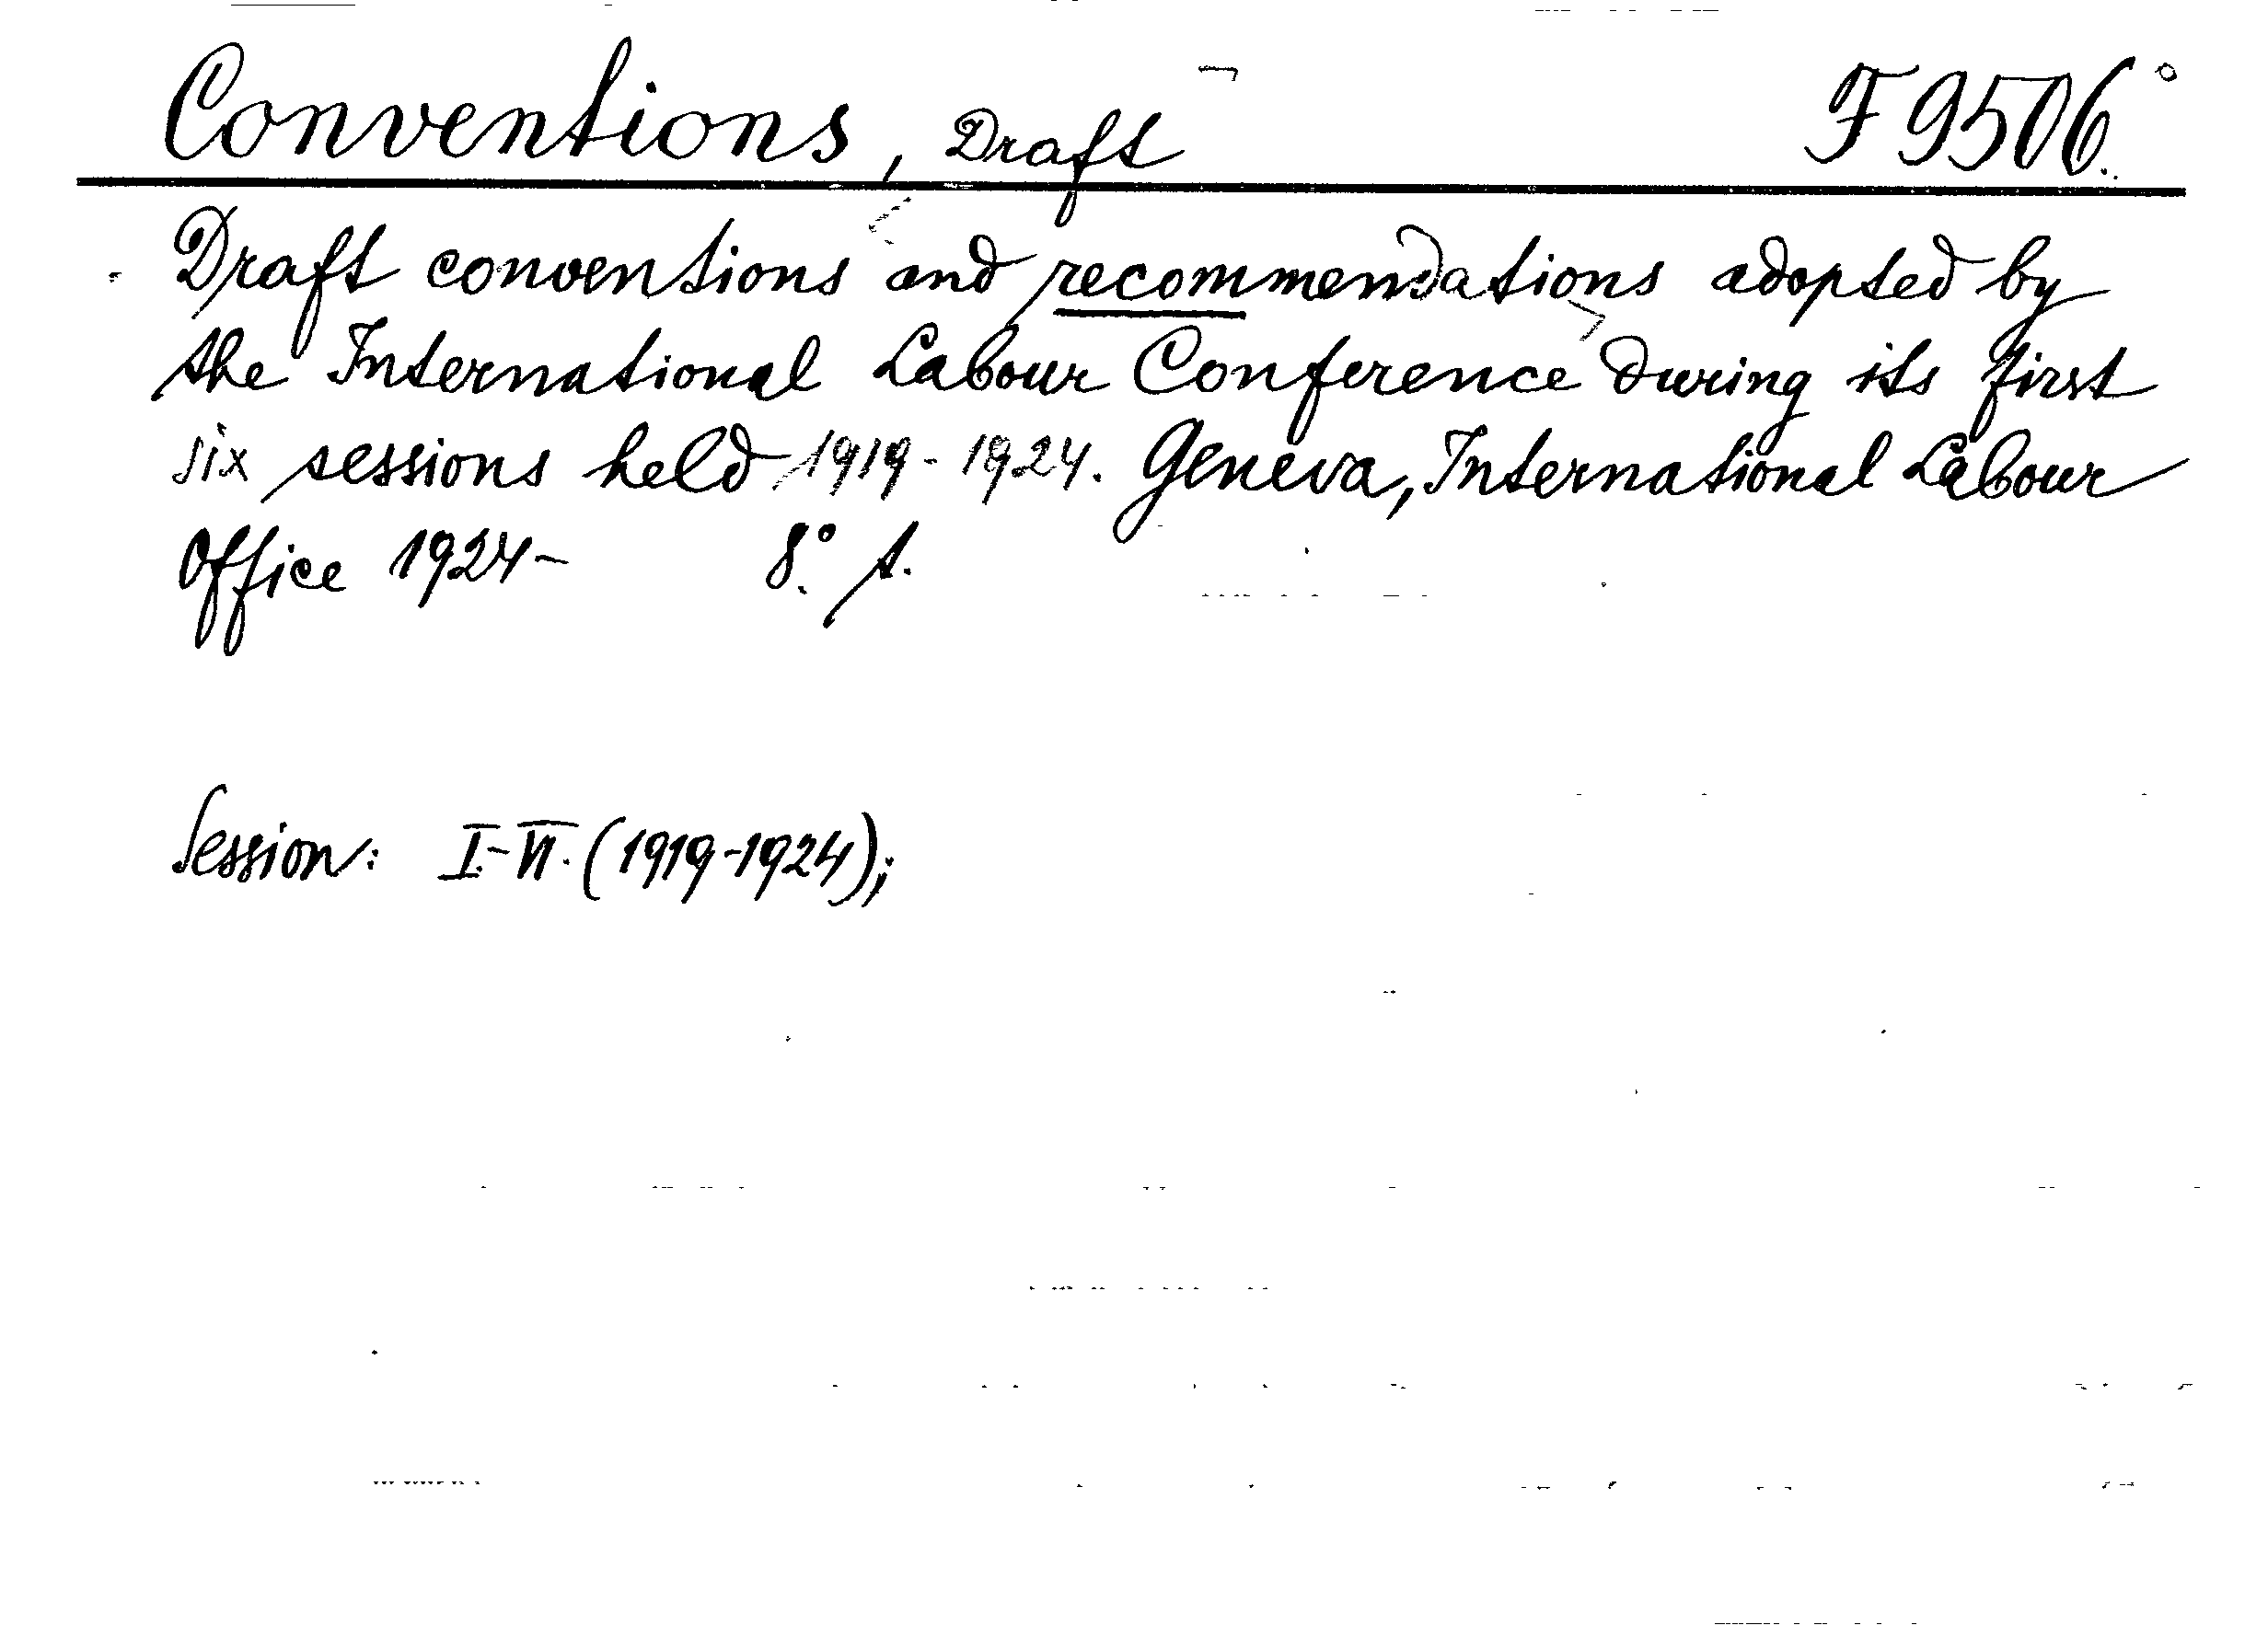 Conventions, Draft F 9506.°
Draft conventions and recommendations adopted by
the International Labour Conference during its first
six sessions held 1919-1924. Geneva, International Labour
Office 1924- 8.° s.
Session: I.-VI. (1919-1924);